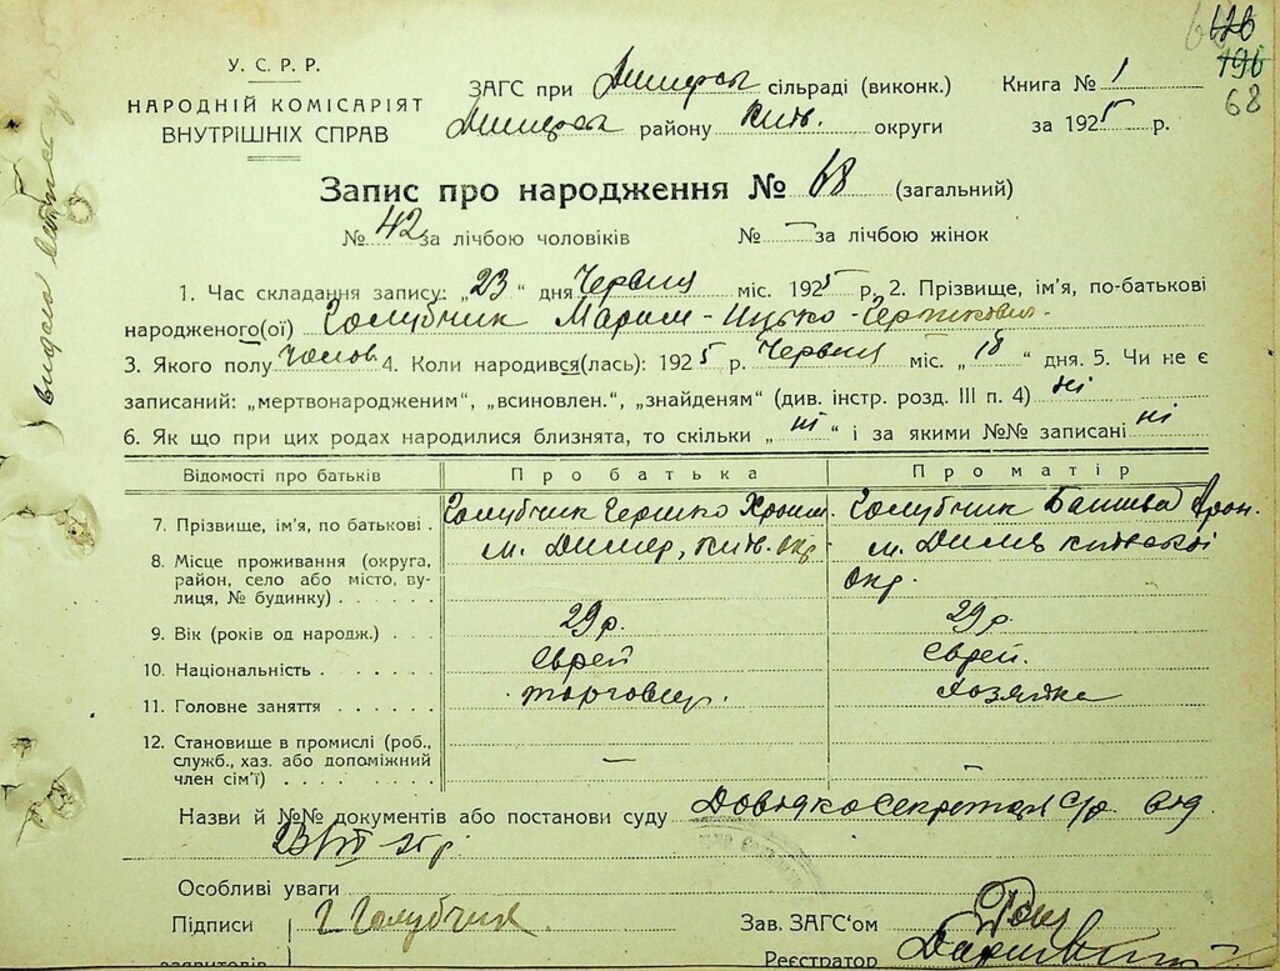 126
196
68
У. С. Р. Р.
НАРОДНІЙ КОМІСАРІЯТ
ВНУТРІШНІХ СПРАВ
ЗАГС при Димерськ сільраді (виконк.)
Книга № 1
Димерськ району Київ. округи
за 1925 р.
Запис про народження № 68 (загальний)
№ 42 за лічбою чоловіків № — за лічбою жінок
1. Час складання запису: „23“ дня Червня міс. 1925 р. 2. Прізвище, ім'я, по-батькові
народженого(ої) Голубчик Марим-Ицько-Гершкович-
3. Якого полу Чолов. 4. Коли народився(лась): 1925 р. Червня міс. „18“ дня. 5. Чи не є
записаний: „мертвонародженим“, „всиновлен.“, „знайденям“ (див. інстр. розд. III п. 4) ні
6. Як що при цих родах народилися близнята, то скільки „ні“ і за якими №№ записані ні
Відомості про батьків Про батька Про матір
7. Прізвище, ім'я, по батькові . Голубчик Гершко Хроим. Голубчик Башива Арон.
8. Місце проживання (округа, район, село або місто, вулиця, № будинку) м. Димер, Київ. окр м. Димер Київської окр.
9. Вік (років од народж.) . . . 29 р. 29 р.
10. Національність . . . . . . Єврей Єврей.
11. Головне заняття . . . . . . торговец. Хозяйка
12. Становище в промислі (роб., служб., хаз. або допоміжний член сім'ї) . . . . . . . . — –
Назви й №№ документів або постанови суду Довідка Секретаря С/р. від
23/VI-25 р.
Особливі уваги
Підписи Г Голубчик
Зав. ЗАГС'ом
заявителів
Реєстратор